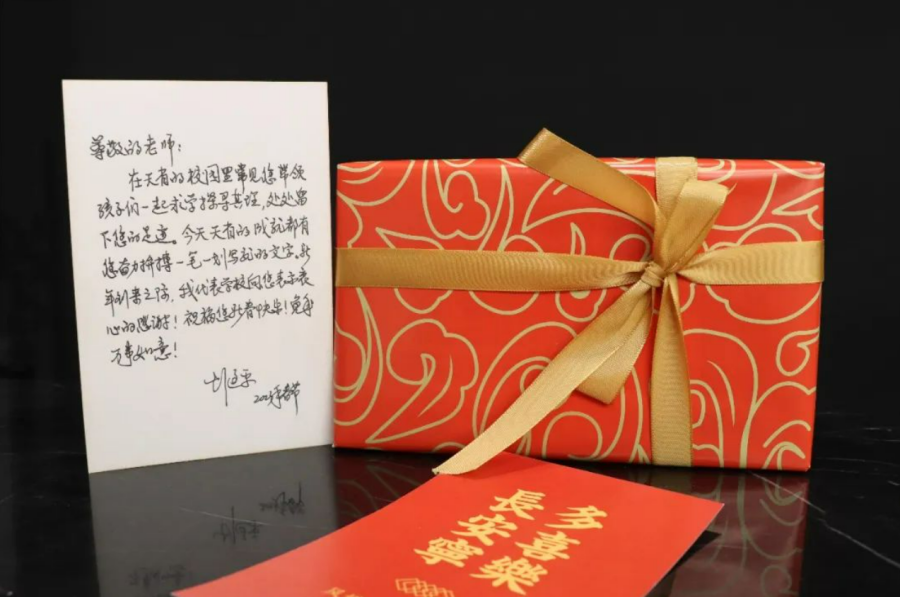 尊敬的老师：
在天有的校园里常见您带领
孩子们一起求学探寻真理，处处留
下您的足迹。今天天有的成就都有
您奋力拼搏一笔一划写就的文字。新
年到来之际，我代表学校向您表示衷
心的感谢！祝福您新春快乐！兔年
万事如意！
2023年春节
多喜樂
長安寧